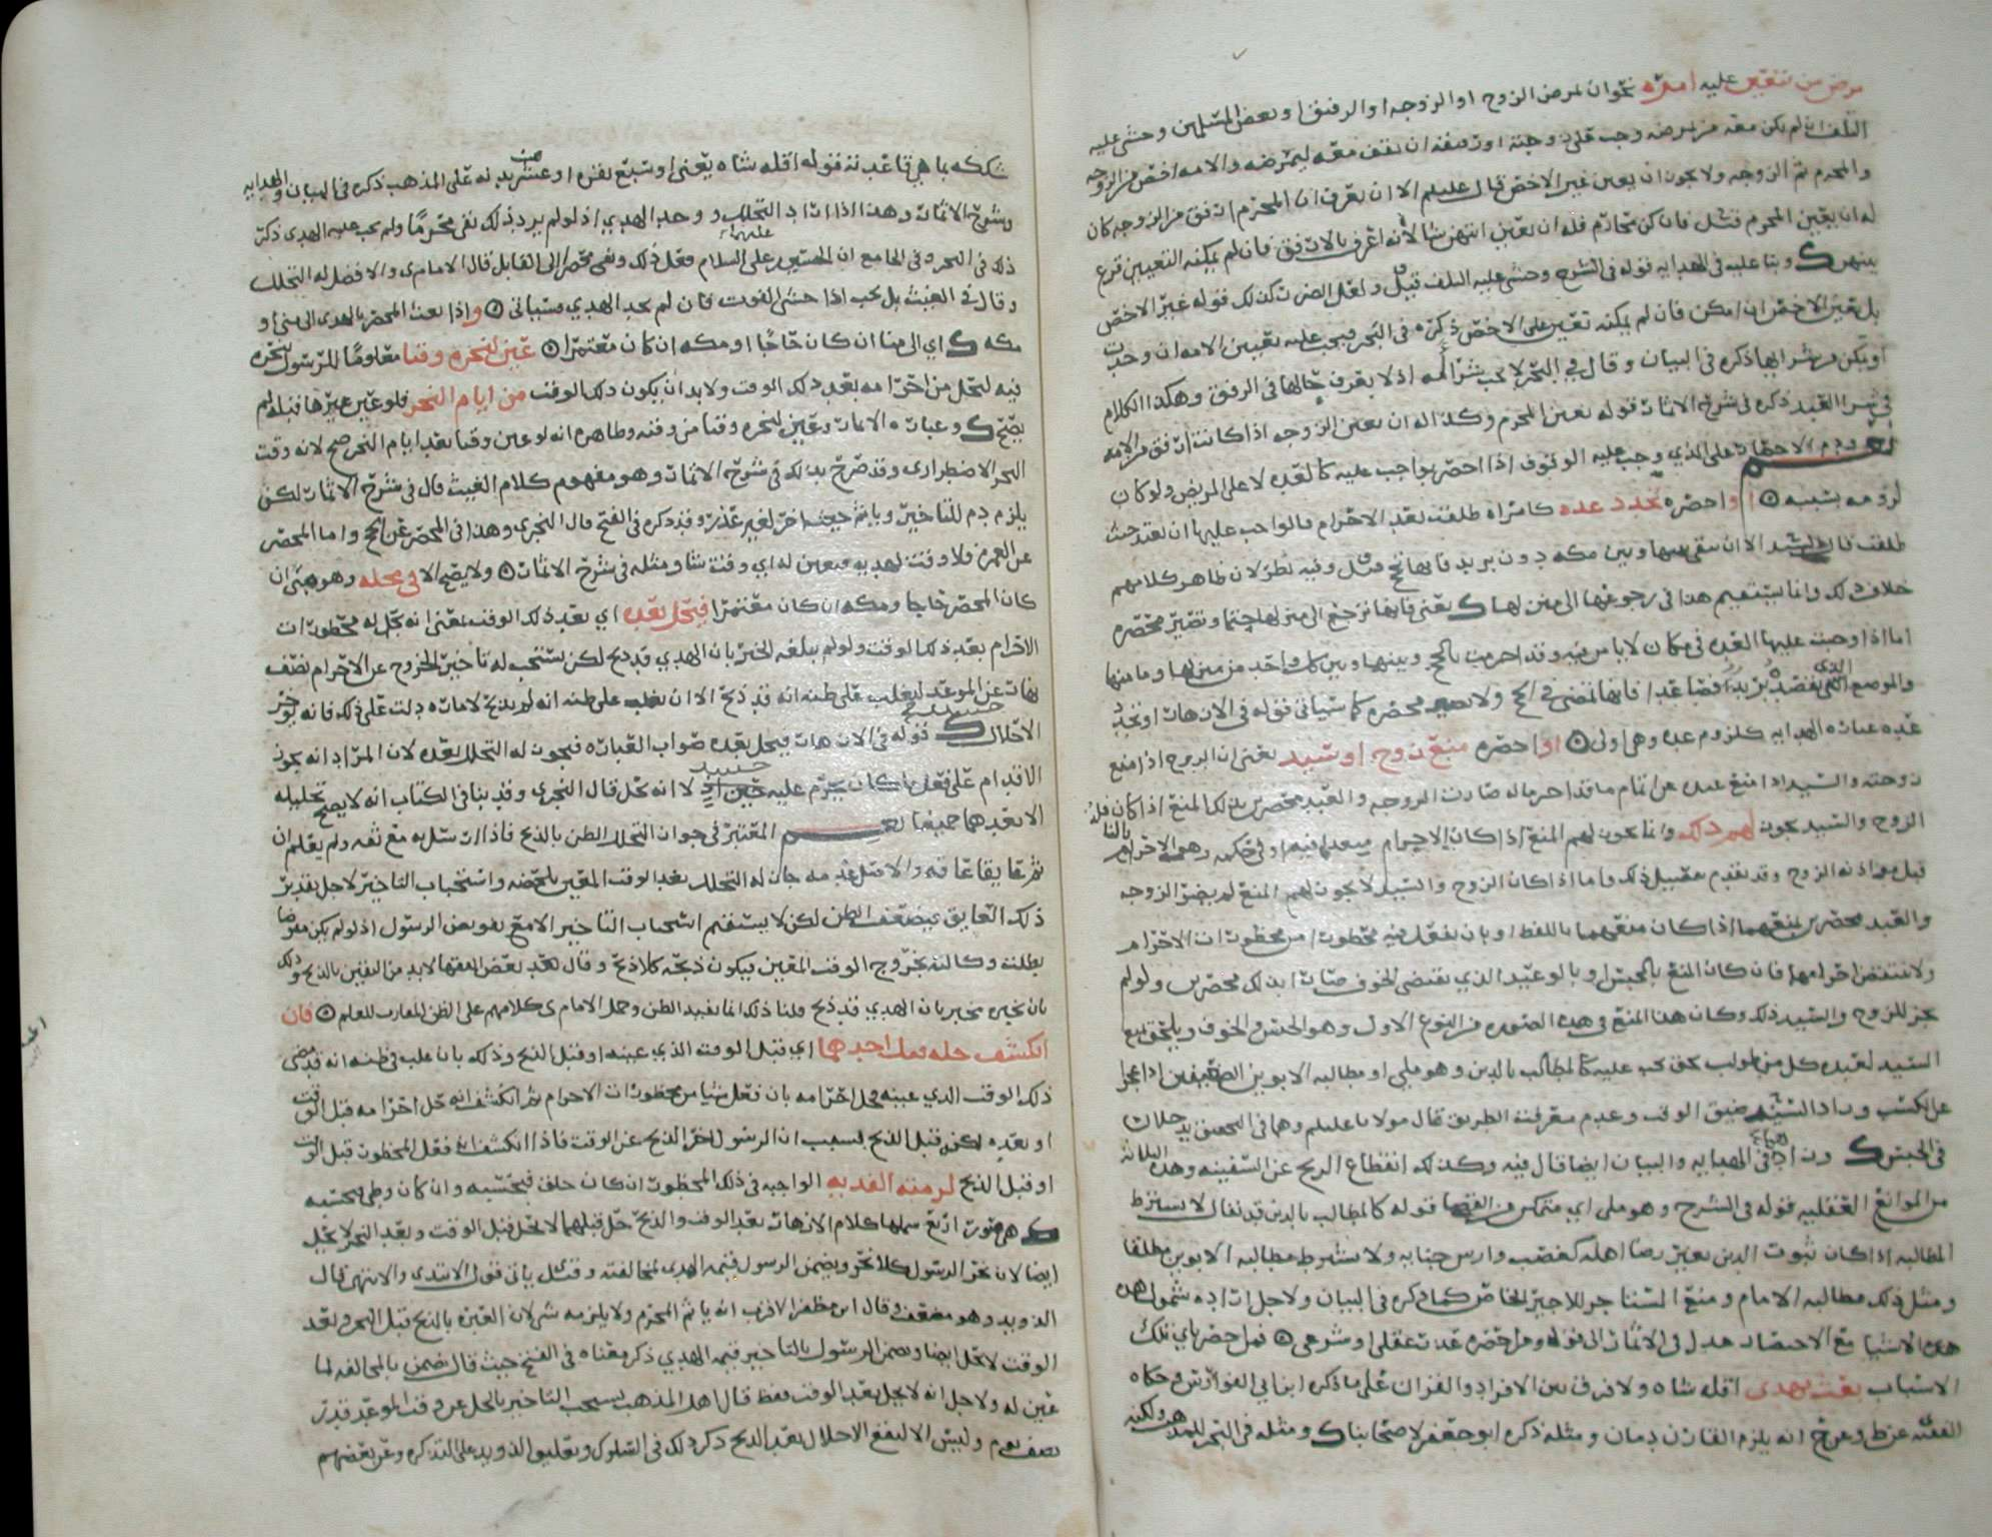 مرض من تتعين عليه امره نحو ان يمرض الزوج او الزوجه او الرفيق او بعض المسلمين وخشي عليه
التلف ان لم يكن معه من يمرضه وجب على زوجته او رفيقه ان يقف معه ليمرضه والامه اخص من الزوجه
والمحرم ثم الزوجه ولا يجوز ان يعين غير الاخص قال عليلم الا ان يعرف ان المحرم ارفق من الزوجه كان
له ان يعين المحرم فان كن محارم فله ان يعين ايتهن شا لأنه اعرف بالارفق فان لم يمكنه التعيين قرع
بينهن وبنا عليه في الهدايه قوله في الشرح وخشي عليه التلف قيل ولعل الضرر كذلك قوله غير الاخص
بل تعين الاخص ان امكن فان لم يمكنه تعين على الاخص ذكره في البحر فيجب عليه تعيين الامه ان وجدت
او يمكن من شرايها ذكره في البيان وقال في البحر لا يجب شرا أمه اذ لا يعرف حالها في الرفق وهكذا الكلام
في شرا العبد ذكره في شرح الاثمار قوله تعين المحرم وكذا له ان يعين الزوجه اذا كانت ارفق من الامه
ودم الاحصار على الذي وجب عليه الوقوف اذا احصر بواجب عليه كالعده لا على المريض ولو كان
لزومه بسببه او احصره تجدد عده كامراه طلقت بعد الاحرام فالواجب عليها ان تعتد حيث
طلقت الا ان بقي بينها وبين مكه دون بريد فانها تحج وفيه نظر لان ظاهر كلامهم
خلاف ذلك وانما يستقيم هذا في رجوعها الى منزلها يعني فانها ترجع الى منزلها حتما وتصير محصره
اما اذا وجبت عليها العده في مكان لاباس فيه وقد احرمت بالحج وبينها وبين كل واحد من منزلها وما منها
والموضع الذي تقصده بريد فصاعدا فانها تمضي في الحج ولا تصير محصره كما سياتي قوله في الازهار او تجدد
عده عباره الهدايه كلزوم عده وهي اولى او احصره منع زوج او سيد يعني ان الزوج اذا منع
زوجته والسيد اذا منع عبده من اتمام ما قد احرما له صارت الزوجه والعبد محصرين بذلك المنع اذا كان
الزوج والسيد يجوز لهم ذلك وانما يجوز لهم المنع اذا كان الاحرام
قبل اذنه الزوج وقد تقدم تفصيل ذلك واما اذا كان الزوج والسيد لا يجوز لهم المنع لم يضر الزوجه
والعبد محصرين بمنعهما اذا كان منعهما باللفظ او بان يفعل فيه محظورا من محظورات الاحرام
ولا ينتقض احرامهما فان كان المنع بالحبس او بالوعيد الذي يقتضي الخوف صارا بذلك محصرين ولو لم
يجز للزوج والسيد ذلك وكان هذا المنع في هذه الصوره من النوع الاول وهو الحبس والخوف ويلحق بمنع
السيد لعبده كل من طولب بحق يجب عليه كالمطالب بالدين وهو ملي او مطالبه الابوين الضعيفين اذا عجزا
عن الكسب وزاد السيد ضيق الوقت وعدم معرفت الطريق قال مولانا عليلم وهما في التحقيق يدخلان
في الحبس وزاد في الهدايه والبيان ايضا قال فيه وكذلك انقطاع الريح عن السفينه وهذه الثلاثه
من الموانع العقليه قوله في الشرح وهو ملي اي متمكن من القضا قوله كالمطالب بالدين قد يقال لا يشترط
المطالبه اذا كان ثبوت الدين بغير رضا اهله كغصب وارش جنايه ولا يشترط مطالبه الابوين مطلقا
ومثل ذلك مطالبه الامام ومنع المستاجر للاجير الخاص كما ذكره في البيان ولاجل اراده شمول هذه
هذه الاشيا مع الاختصار عدل في الاثمار الى قوله ومن احصره عذر عقلي او شرعي فمن احصر باي تلك
الاسباب بعث بهدي اقله شاه ولا فرق بين الافراد والقران على ما ذكره ابنا ابي الفوارس وحكاه
الفقيه ع ط وعن ح انه يلزم القارن دمان ومثله ذكره ابو جعفر لاصحابنا ك ومثله في البحر للمذهب ولكنه
شككه بما هي قاعدته قوله اقله شاه يعني او سبع بقره او عشر بدنه على المذهب ذكره في البيان والهدايه
وشرح الاثمار وهذا اذا اراد التحلل ووجد الهدي اذ لو لم يرد ذلك بقي محرمًا ولم يجب عليه الهدي ذكر
ذلك في البحر وفي الجامع ان الحسين بن علي عليهما السلام فعل ذلك وبقي محصرا الى القابل قال الامام ى والافضل له التحلل
وقال في الغيث بل يجب اذا خشي الفوت فان لم يجد الهدي فسياتي واذا بعث المحصر بالهدي الى منى او
مكه اي الى منا ان كان حاجًا او مكه ان كان معتمرا عين لنحره وقتا معلومًا للرسول ينحره
فيه ليحل من احرامه بعد ذلك الوقت ولا بد ان يكون ذلك الوقت من ايام النحر فلو عين غيرها قبله لم
يصح وعباره الاثمار وعين لنحره وقتا من وقته وظاهره انه لو عين وقتا بعد ايام النحر صح لانه وقت
النحر الاضطراري وقد صرح بذلك في شرح الاثمار وهو مفهوم كلام الغيث قال في شرح الاثمار لكن
يلزم دم للتاخير وياثم حيث اخر لغير عذر وقد ذكره في الفتح قال النجري وهذا في المحصر عن الحج واما المحصر
عن العمره فلا وقت لهديه فيعين له اي وقت شا ومثله في شرح الاثمار ولا يصح الا في محله وهو منى ان
كان المحصر حاجا ومكه ان كان معتمرا فيحل بعده اي بعد ذلك الوقت بمعنى انه يحل له محظورات
الاحرام بعد ذلك الوقت ولو لم يبلغه الخبر بان الهدي قد ذبح لكن يستحب له تاخير الخروج عن الاحرام نصف
نهار عن الموعد ليغلب على ظنه انه قد ذبح الا ان يغلب على ظنه انه لم يذبح لامارة دلت على ذلك فانه يؤخر
الاحلال قوله في الازهار فيحل بعده صواب العباره فيجوز له التحلل بعده لان المراد انه يجوز
الاقدام على فعل ما كان يحرم عليه لا انه يحل قال النجري وقد بنا في الكتاب انه لا يصح تحليله
الا بعدهما جميعا المعتبر في جواز التحلل الظن بالذبح فاذا ارسله مع ثقه ولم يعلم ان
ثم عايقا عاقه والاصل عدمه جاز له التحلل بعد الوقت المعين بلحظه واستحباب التاخير لاجل تقدير
ذلك العايق يضعف الظن لكن لا يستقيم استحباب التاخير الا مع تفويض الرسول اذ لو لم يكن مفوضا
بطلت وكالته بخروج الوقت المعين فيكون ذبحه كلا ذبح وقال بعض الفقها لا بد من اليقين بالذبح وذلك
بان يخبره مخبر بان الهدي قد ذبح قلنا ذلك انما يفيد الظن وحمل الامام ى كلامهم على الظن المقارب للعلم فان
انكشف حله قبل احدهما اي قبل الوقت الذي عينه او قبل الذبح وذلك بان غلب في ظنه انه قد مضى
ذلك الوقت الذي عينه فحل احرامه بان فعل شيا من محظورات الاحرام ثم انكشف انه حل احرامه قبل الوقت
او بعده لكن قبل الذبح بسبب ان الرسول اخر الذبح عن الوقت فاذا انكشف انه فعل المحظور قبل الوقت
او قبل الذبح لزمته الفديه الواجبه في ذلك المحظور ان كان حلق فبحسبه وان كان وطي فبحسبه
هي صور اربع شملها كلام الازهار بعد الوقت والذبح حل قبلهما لا يحل قبل الوقت وبعد النحر لا يحل
ايضا لان نحر الرسول كلا نحر ويضمن الرسول قيمه الهدي لمخالفته وقيل ياتي قول الابتدى والانتهى قال
الذويد وهو مضعف وقال ابن مظفر الاقرب انه ياثم المحرم ولا يلزمه شي لان العبره بالذبح قبل النحر وبعد
الوقت لا يحل ايضا ويضمن الرسول بالتاخير قيمه الهدي ذكر معناه في الفتح حيث قال يضمن بالمخالفه لما
عين له ولاجل انه لا يحل بعد الوقت فقط قال اهل المذهب يستحب التاخير بالحل عن وقت الموعد قدر
نصف يوم وليس الا ليقع الاحلال بعد الذبح ذكر ذلك في السلوك وتعليق الذويد على التذكره وعن بعضهم